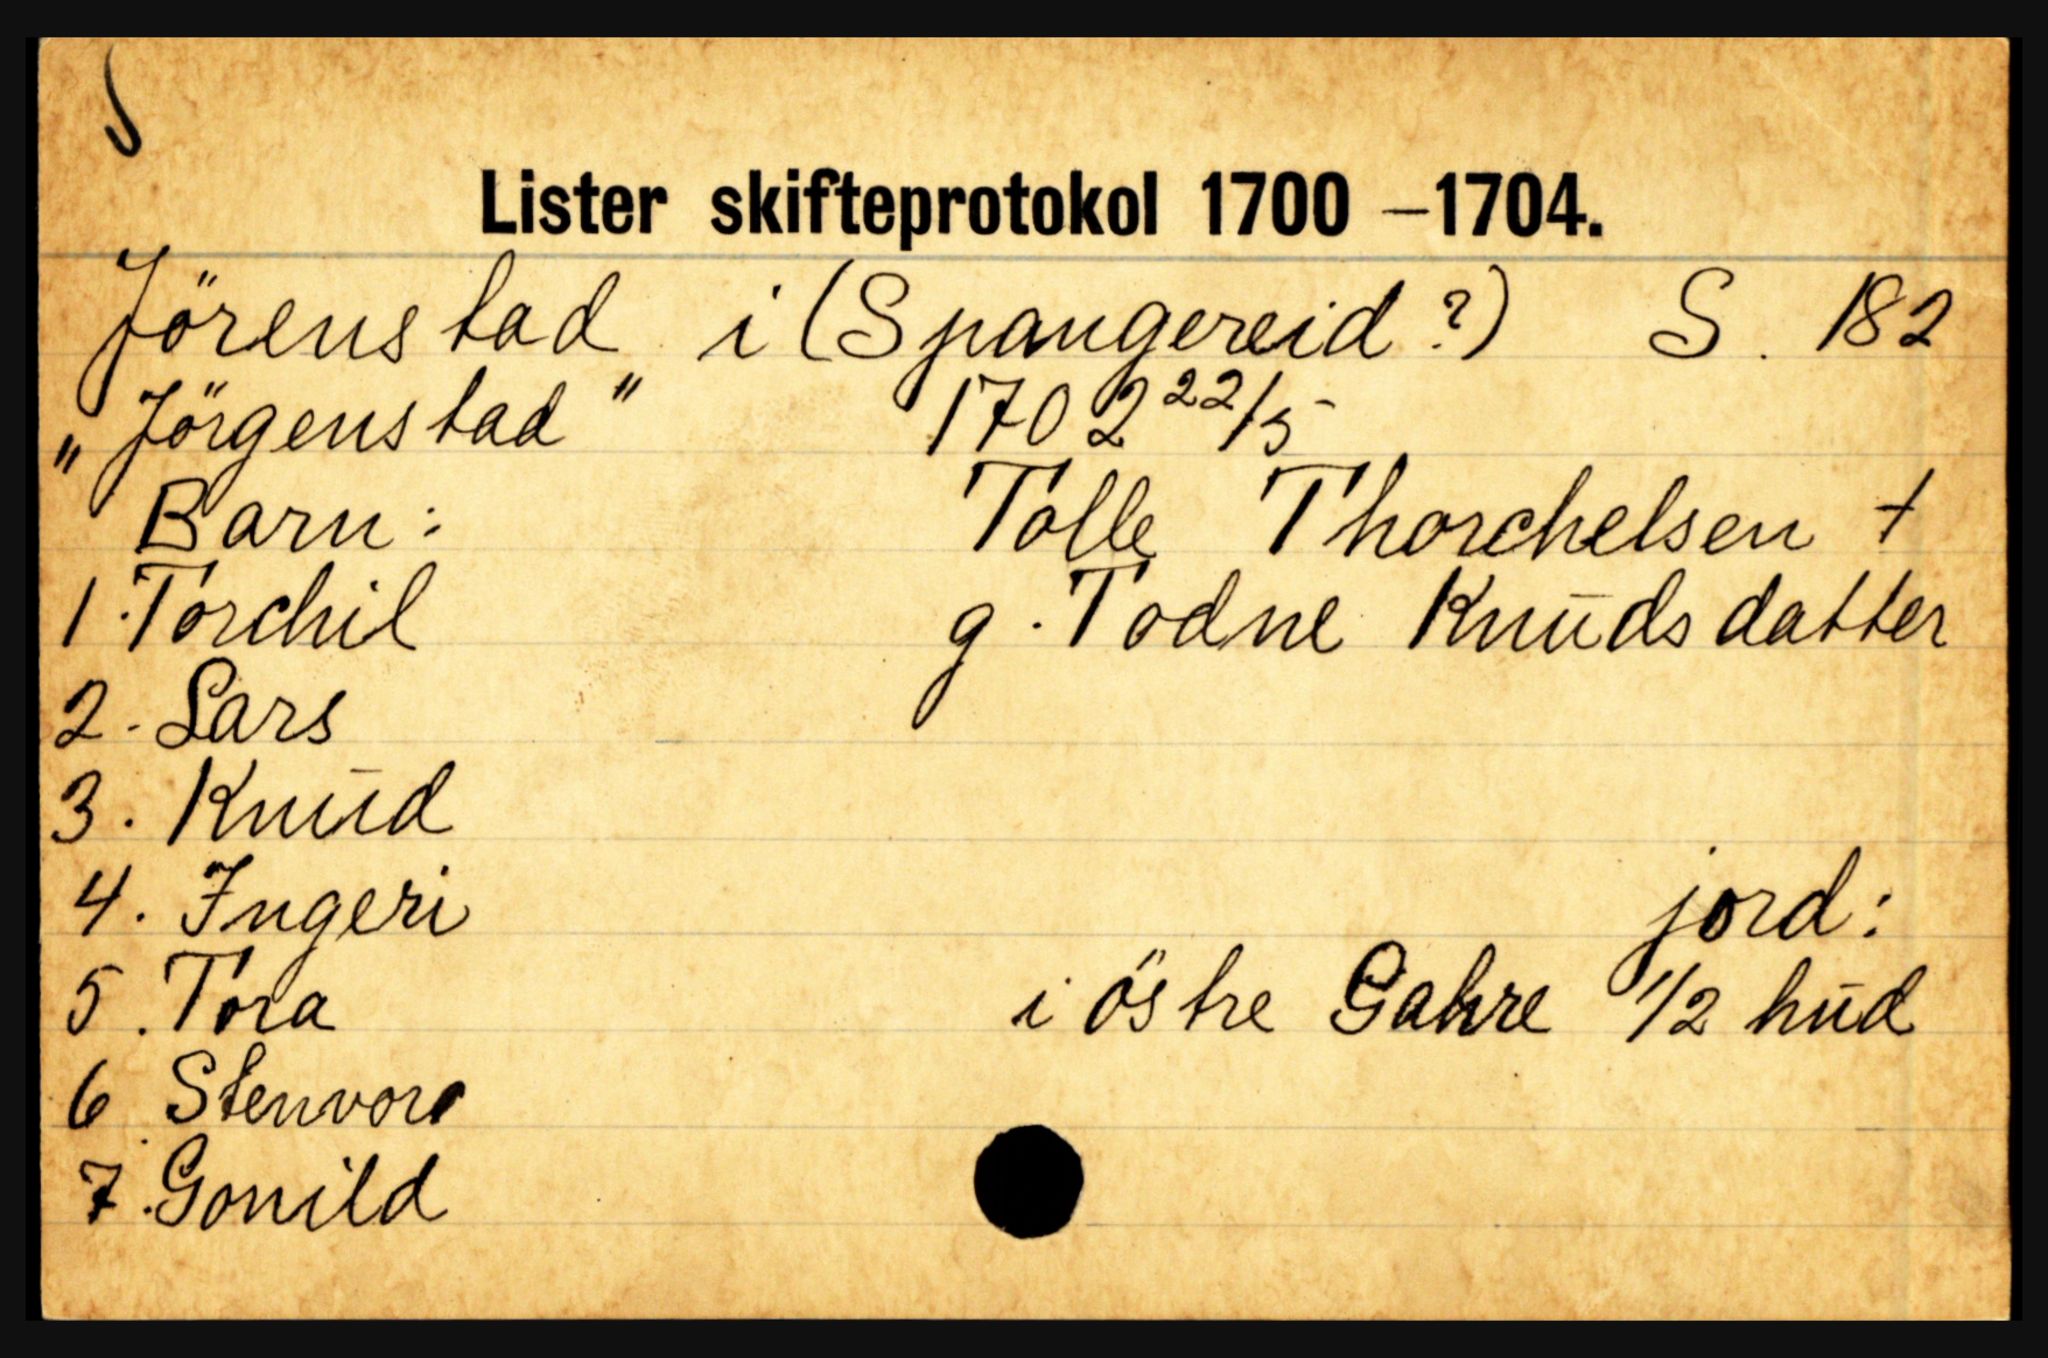 Lister skifteprotokol 1700 –1704.
Jörenstad i (Spangereid?) S. 182
„Jörgenstad" 1702 22/5
Barn: Tolle Thorchelsen +
1. Torchil g. Todne Knudsdatter
2. Lars
3. Knud
4. Ingeri jord:
5. Tora i östre Gahre 1/2 hud
6. Stenvor
7. Gonild